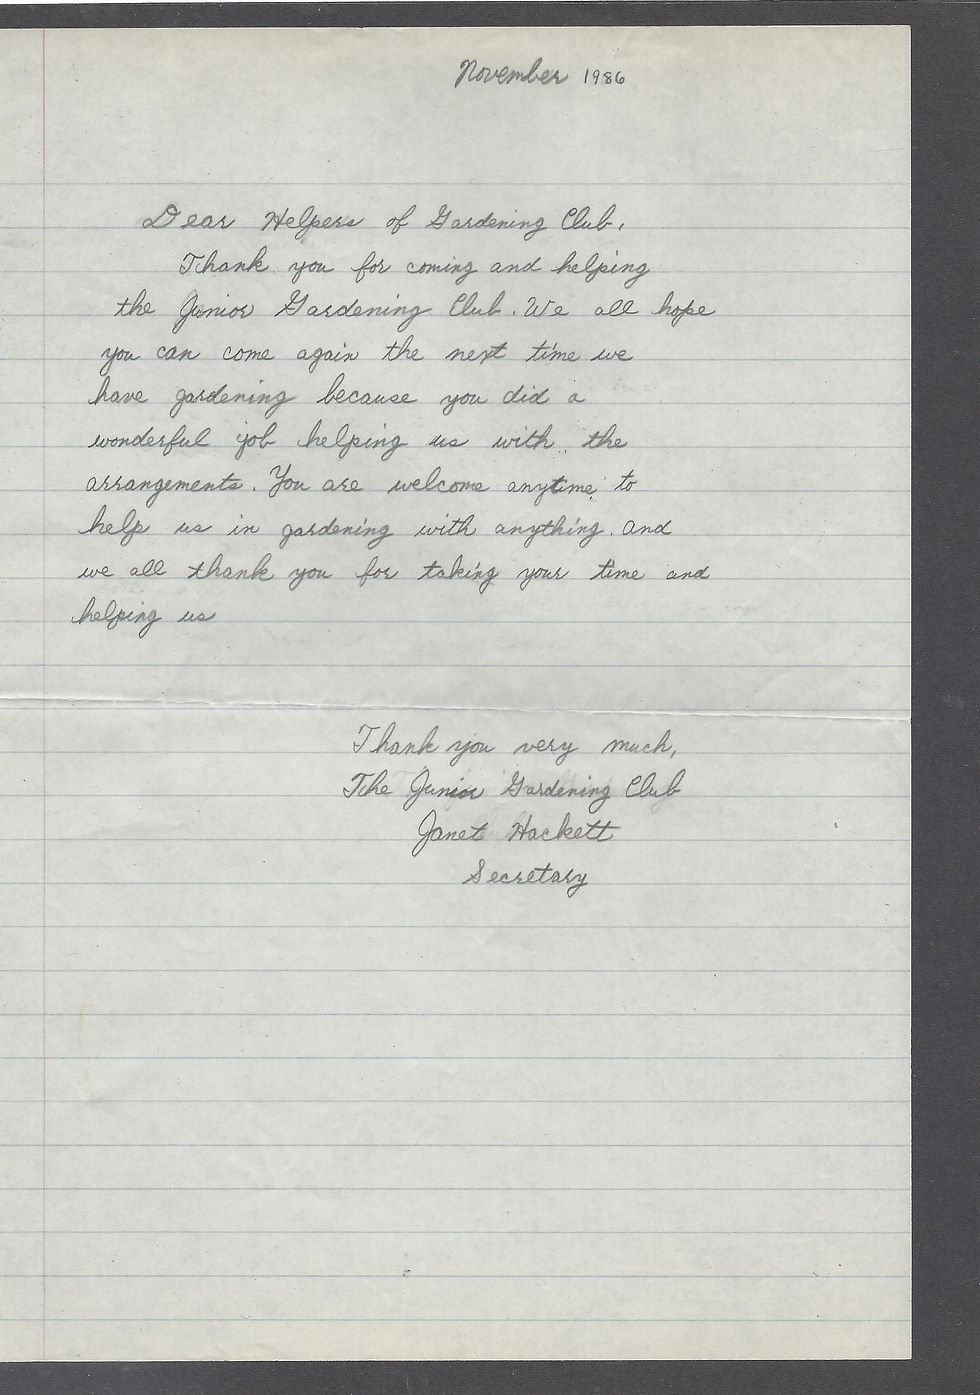 November 1986
Dear Helpers of Gardening Club,
Thank you for coming and helping
the Junior Gardening Club. We all hope
you can come again the next time we
have gardening because you did a
wonderful job helping us with the
arrangements. You are welcome anytime to
help us in gardening with anything. and
we all thank you for taking your time and
helping us
Thank you very much,
The Junior Gardening Club
Janet Hackett
Secretary